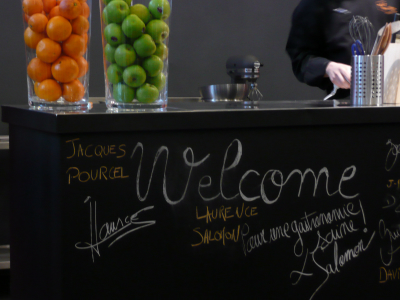 JACQUES
POURCEL
Welcome
LAURENCE
SALOMON
Pour une gastronomie
saine !
L Salomon
DAVI